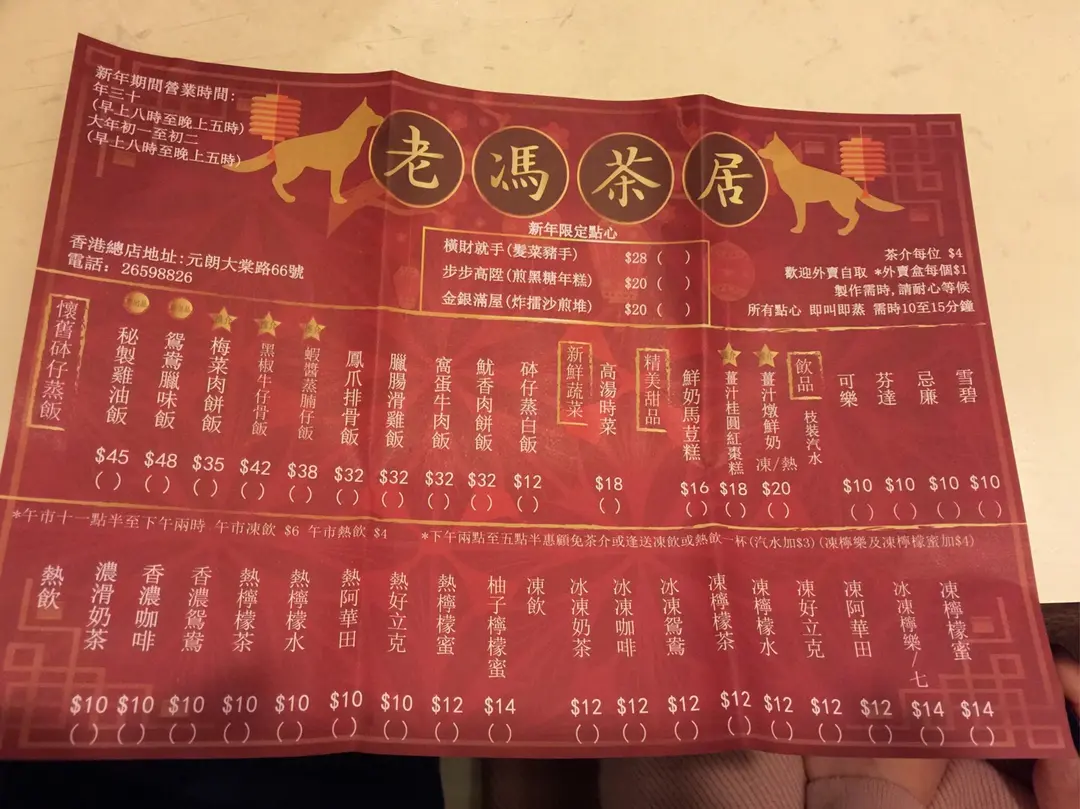 新年期間營業時間:
年三十
(早上八時至晚上五時)
大年初一至初二
(早上八時至晚上五時)
老馮茶居
香港總店地址:元朗大棠路66號
電話: 26598826
新年限定點心
橫財就手(髮菜豬手) $28 ( )
步步高陞(煎黑糖年糕) $20 ( )
金銀滿屋(炸擂沙煎堆) $20 ( )
茶介每位 $4
歡迎外賣自取 *外賣盒每個$1
製作需時,請耐心等候
所有點心 即叫即蒸 需時10至15分鐘
懷舊砵仔蒸飯
秘製雞油飯 $45 ( )
鴛鴦臘味飯 $48 ( )
梅菜肉餅飯 $35 ( )
黑椒牛仔骨飯 $42 ( )
蝦醬蒸腩仔飯 $38 ( )
鳳爪排骨飯 $32 ( )
臘腸滑雞飯 $32 ( )
窩蛋牛肉飯 $32 ( )
魷香肉餅飯 $32 ( )
砵仔蒸白飯 $12 ( )
新鮮蔬菜
高湯時菜 $18 ( )
精美甜品
鮮奶馬荳糕 $16 ( )
薑汁桂圓紅棗糕 $18 ( )
薑汁燉鮮奶 凍/熱 $20 ( )
飲品
枝裝汽水
可樂 $10 ( )
芬達 $10 ( )
忌廉 $10 ( )
雪碧 $10 ( )
*午市十一點半至下午兩時 午市凍飲 $6 午市熱飲 $4
*下午兩點至五點半惠顧免茶介或逢送凍飲或熱飲一杯(汽水加$3)(凍檸樂及凍檸檬蜜加$4)
熱飲
濃滑奶茶 $10 ( )
香濃咖啡 $10 ( )
香濃鴛鴦 $10 ( )
熱檸檬茶 $10 ( )
熱檸檬水 $10 ( )
熱阿華田 $10 ( )
熱好立克 $10 ( )
熱檸檬蜜 $12 ( )
柚子檸檬蜜 $14 ( )
凍飲
冰凍奶茶 $12 ( )
冰凍咖啡 $12 ( )
冰凍鴛鴦 $12 ( )
凍檸檬茶 $12 ( )
凍檸檬水 $12 ( )
凍好立克 $12 ( )
凍阿華田 $12 ( )
冰凍檸樂/七 $14 ( )
凍檸檬蜜 $14 ( )